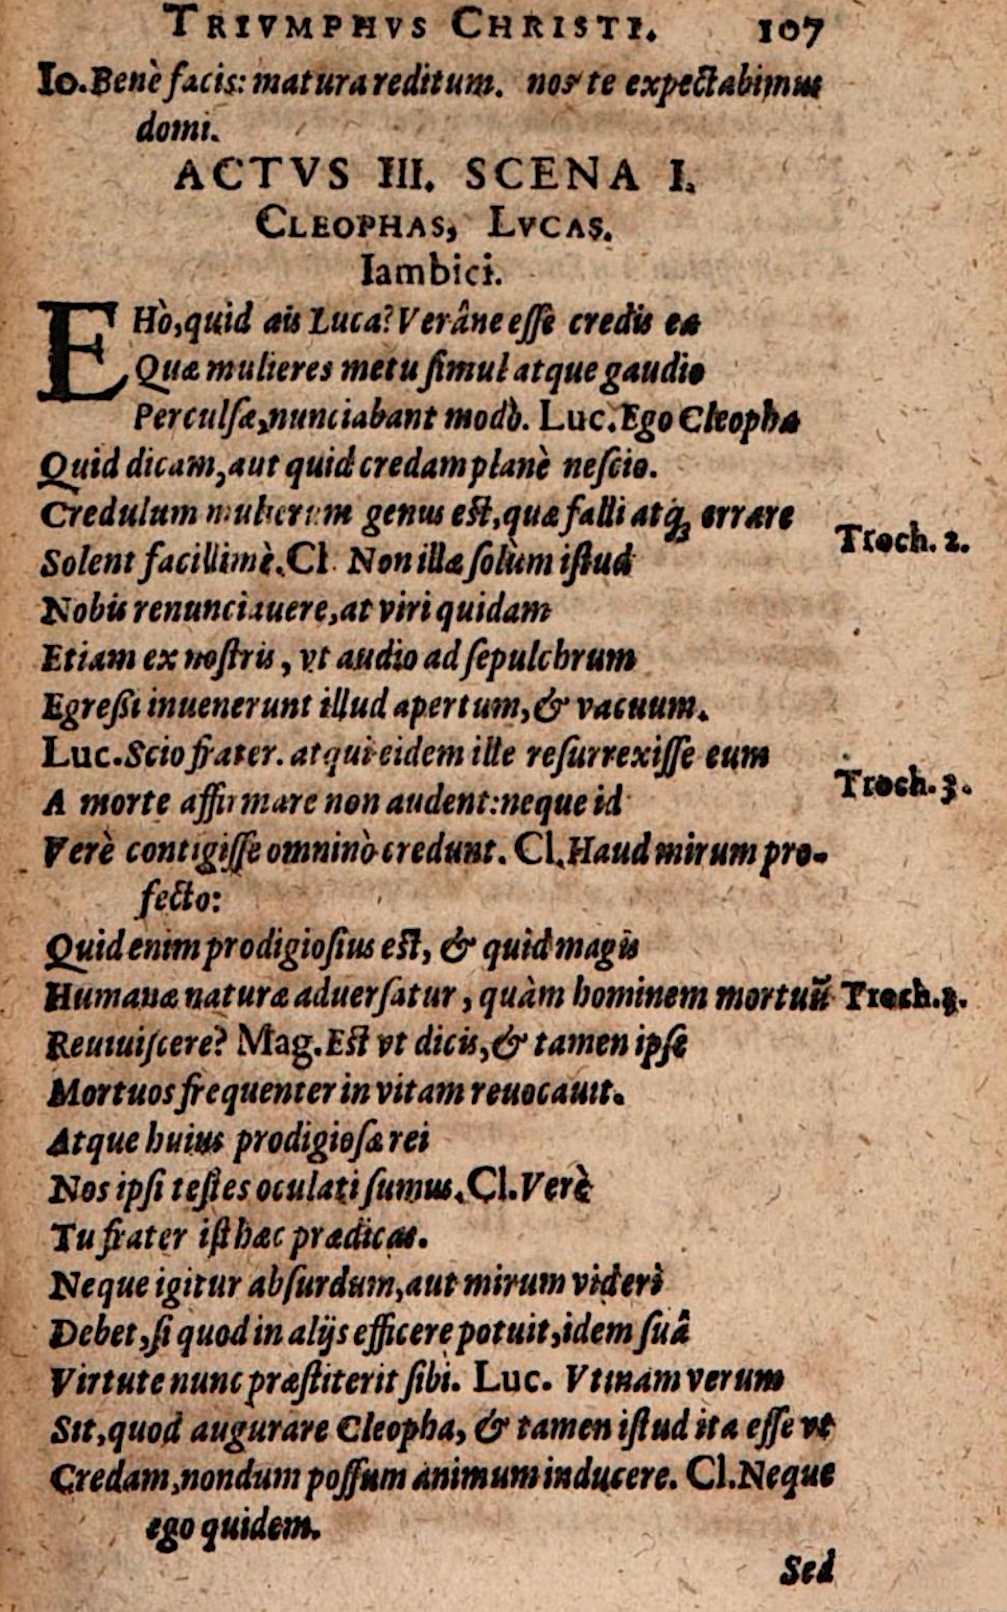 TRIVMPHVS CHRISTI. 107
Io. Benè facis: matura reditum. nos te expectabimus
domi.
ACTVS III. SCENA I.
CLEOPHAS, LVCAS.
Iambici.
EHò, quid ais Luca? Verâne esse credis ea
Quæ mulieres metu simul atque gaudio
Perculsæ, nunciabant modò. Luc. Ego Cleopha
Quid dicam, aut quid credam planè nescio.
Credulum mulierum genus est, quæ falli atq́; errare
Troch. 2.
Solent facillimè. Cl. Non illæ solùm istud
Nobis renunciauere, at viri quidam
Etiam ex nostris, vt audio ad sepulchrum
Egreßi inuenerunt illud apertum, & vacuum.
Luc. Scio frater. atqui eidem ille resurrexisse eum
Troch. 3.
A morte affirmare non audent: neque id
Verè contigisse omninò credunt. Cl. Haud mirum pro-
fecto:
Quid enim prodigiosius est, & quid magis
Humanæ naturæ aduersatur, quàm hominem mortuũ Troch. 3.
Reuiuiscere? Mag. Est vt dicis, & tamen ipse
Mortuos frequenter in vitam reuocauit.
Atque huius prodigiosæ rei
Nos ipsi testes oculati sumus. Cl. Verè
Tu frater isthæc prædicas.
Neque igitur absurdum, aut mirum videri
Debet, si quod in alijs efficere potuit, idem suâ
Virtute nunc præstiterit sibi. Luc. Vtinam verum
Sit, quod augurare Cleopha, & tamen istud ita esse vt
Credam, nondum possum animum inducere. Cl. Neque
ego quidem.
Sed